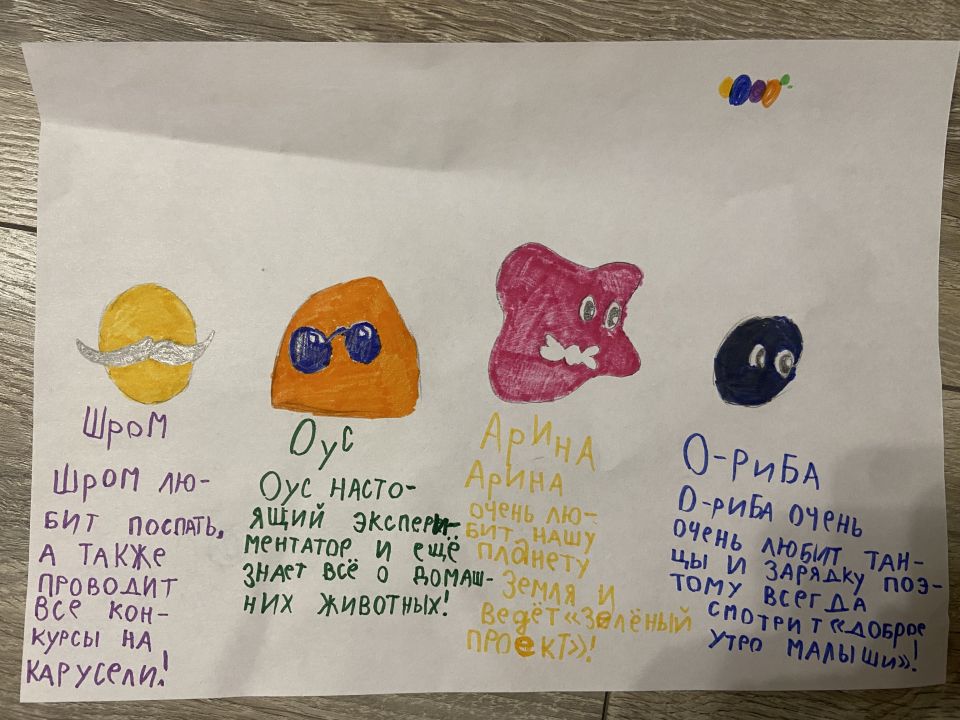 Шром
Шром лю-
бит поспать,
а также
проводит
все кон-
курсы на
карусели!
Оус
Оус насто-
ящий экспери-
ментатор и ещё
знает всё о домаш-
них животных!
Арина
Арина
очень лю-
бит нашу
планету
Земля и
ведёт «Зелёный
проект»!
О-риба
О-риба очень
очень любит тан-
цы и зарядку поэ-
тому всегда
смотрит «Доброе
утро малыши»!